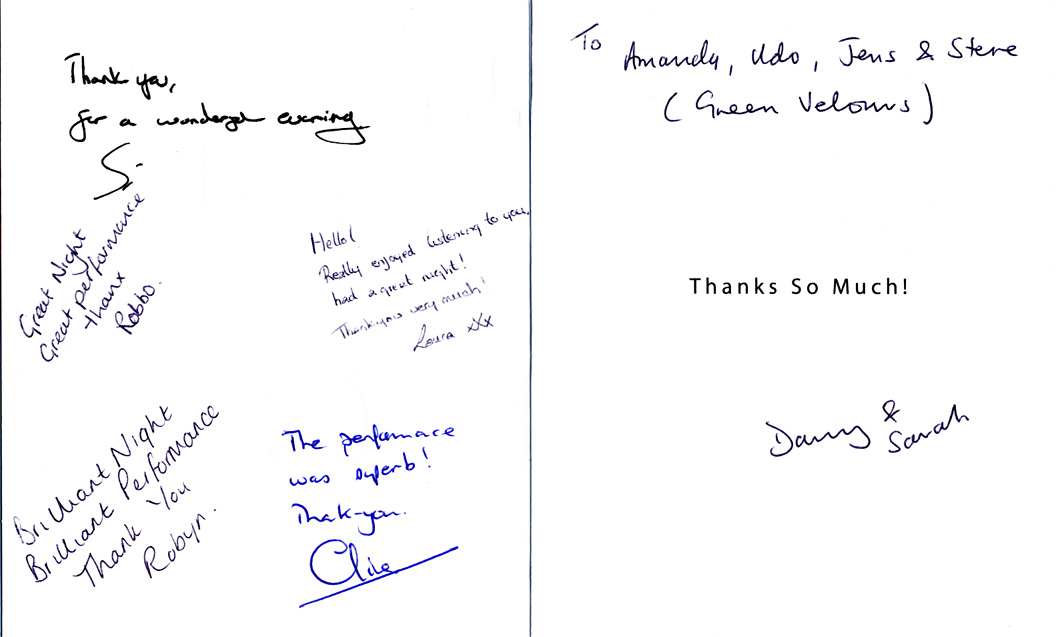 Thank you,
for a wonderful evening
S.
Great Night
Great performance
thanx
Robbo.
Hello!
Really enjoyed listening to you,
had a great night!
Thankyou very much!
Laura xXx
Brilliant Night
Brilliant Performance
Thank You
Robyn.
The performace
was superb!
Thak-you.
Clive
To
Amanda, Udo, Jens & Steve
(Green Velours)
Thanks So Much!
Danny &
Sarah